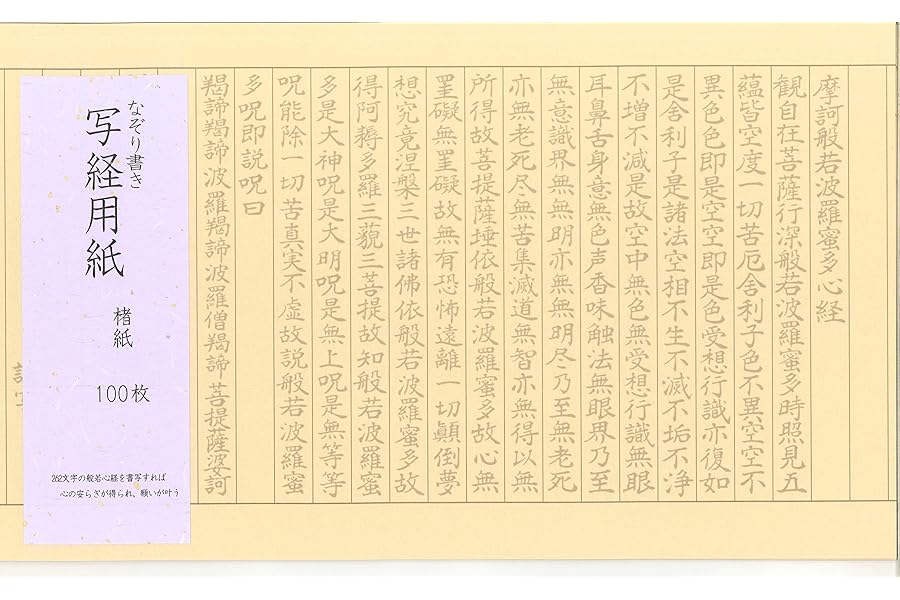 摩訶般若波羅蜜多心経
観自在菩薩行深般若波羅蜜多時照見五
蘊皆空度一切苦厄舍利子色不異空空不
異色色即是空空即是色受想行識亦復如
是舍利子是諸法空相不生不滅不垢不浄
不増不減是故空中無色無受想行識無眼
耳鼻舌身意無色声香味触法無眼界乃至
無意識界無無明亦無無明尽乃至無老死
亦無老死尽無苦集滅道無智亦無得以無
所得故菩提薩埵依般若波羅蜜多故心無
罣礙無罣礙故無有恐怖遠離一切顚倒夢
想究竟涅槃三世諸佛依般若波羅蜜多故
得阿耨多羅三藐三菩提故知般若波羅蜜
多是大神呪是大明呪是無上呪是無等等
呪能除一切苦真実不虚故説般若波羅蜜
多呪即説呪曰
羯諦羯諦波羅羯諦波羅僧羯諦菩提薩婆訶
なぞり書き
写経用紙
楮紙
100枚
262文字の般若心経を書写すれば
心の安らぎが得られ、願いが叶う